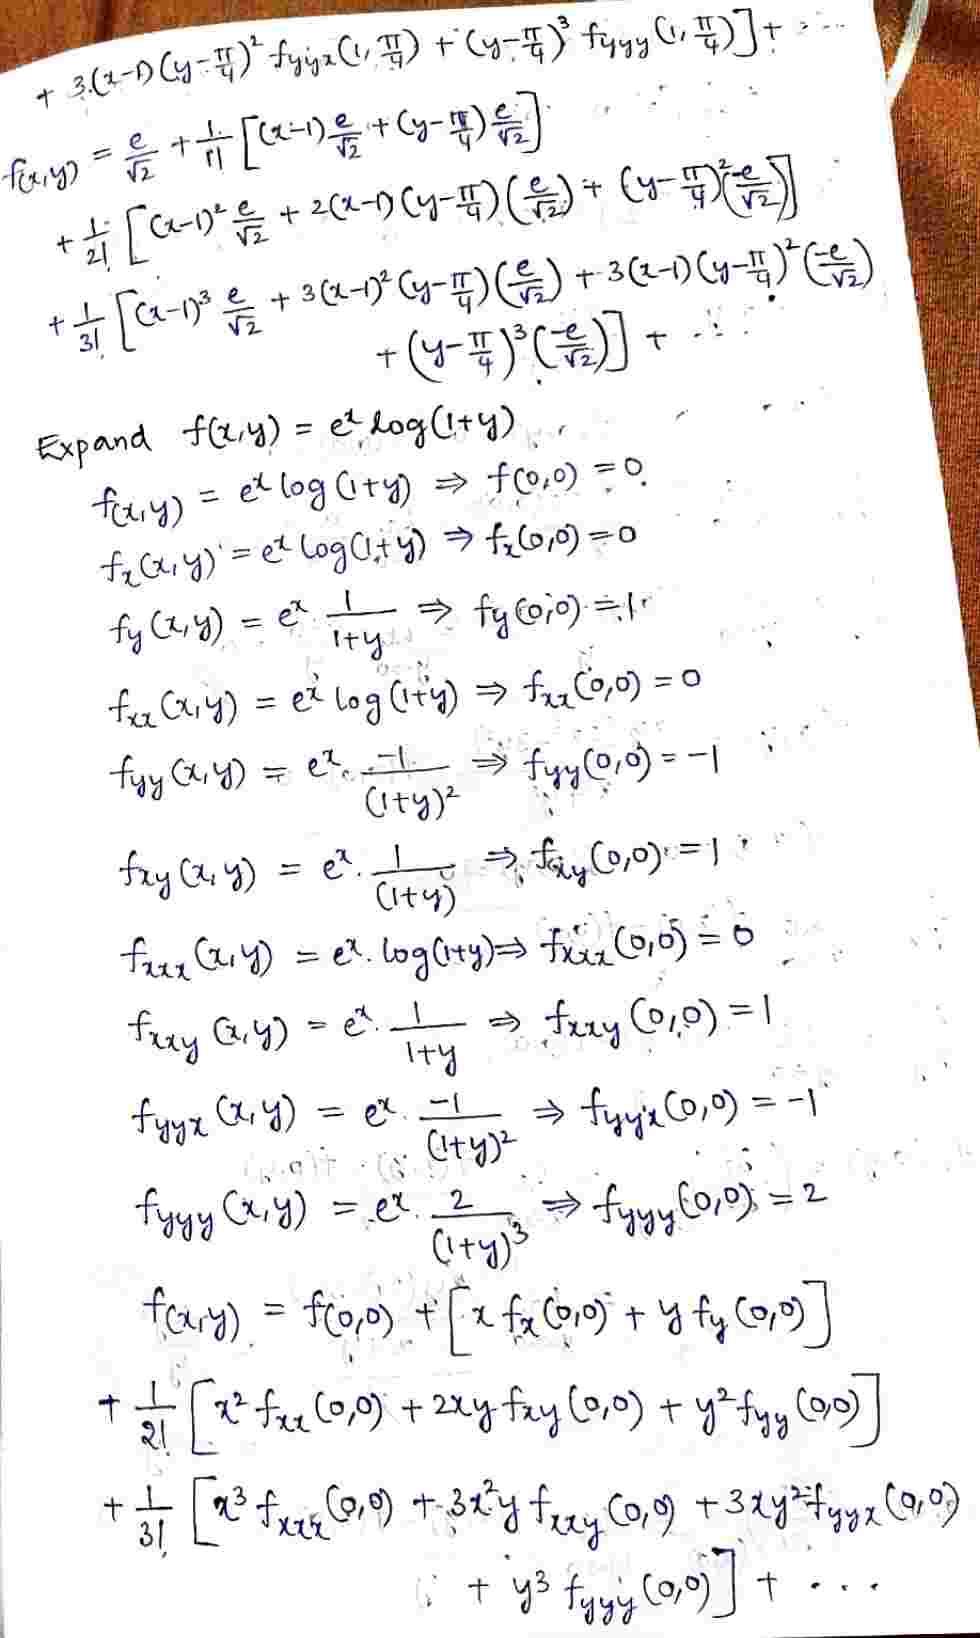 + 3.(x-1)(y-π/4)² fyyx(1, π/4) + (y-π/4)³ fyyy(1, π/4)] + ....
f(x,y) = e/√2 + 1/1! [(x-1) e/√2 + (y-π/4) e/√2]
+ 1/2! [(x-1)² e/√2 + 2(x-1)(y-π/4)(e/√2) + (y-π/4)²(-e/√2)]
+ 1/3! [(x-1)³ e/√2 + 3(x-1)²(y-π/4)(e/√2) + 3(x-1)(y-π/4)²(-e/√2)
+ (y-π/4)³(-e/√2)] + ....
Expand f(x,y) = eˣ log(1+y)
f(x,y) = eˣ log(1+y) ⇒ f(0,0) = 0
fx(x,y) = eˣ log(1+y) ⇒ fx(0,0) = 0
fy(x,y) = eˣ 1/(1+y) ⇒ fy(0,0) = 1
fxx(x,y) = eˣ log(1+y) ⇒ fxx(0,0) = 0
fyy(x,y) = eˣ. -1/(1+y)² ⇒ fyy(0,0) = -1
fxy(x,y) = eˣ. 1/(1+y) ⇒ fxy(0,0) = 1
fxxx(x,y) = eˣ. log(1+y) ⇒ fxxx(0,0) = 0
fxxy(x,y) = eˣ. 1/(1+y) ⇒ fxxy(0,0) = 1
fyyx(x,y) = eˣ. -1/(1+y)² ⇒ fyyx(0,0) = -1
fyyy(x,y) = eˣ. 2/(1+y)³ ⇒ fyyy(0,0) = 2
f(x,y) = f(0,0) + [x fx(0,0) + y fy(0,0)]
+ 1/2! [x² fxx(0,0) + 2xy fxy(0,0) + y² fyy(0,0)]
+ 1/3! [x³ fxxx(0,0) + 3x²y fxxy(0,0) + 3xy² fyyx(0,0)
+ y³ fyyy(0,0)] + ...